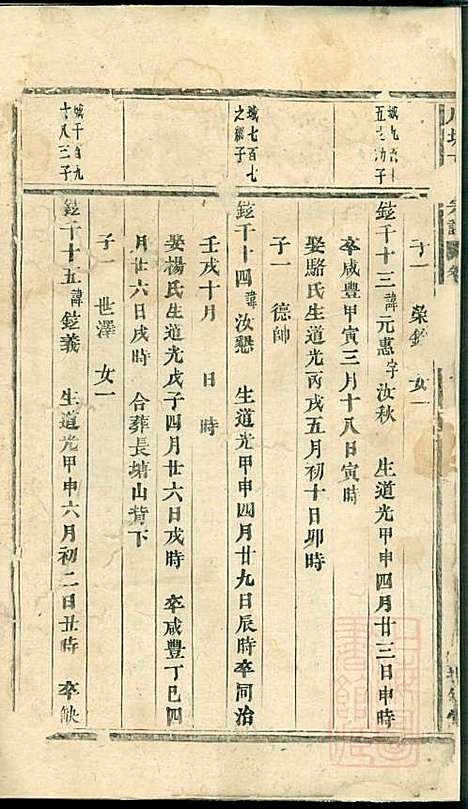 子一 榮 女一
鎡千十三諱元惠字汝秋 生道光甲申四月廿三日申時
卒咸豐甲寅三月十八日寅時
娶駱氏生道光丙戌五月初十日卯時
子一 德帥
城七百七
之繼子
鎡千十四諱汝懇 生道光甲申四月廿九日辰時卒同治
壬戌十月 日 時
娶楊氏生道光戊子四月廿六日戌時 卒咸豐丁巳四
月廿六日戌時 合葬長塘山背下
子一 世澤 女一
城千百九
十八三子
鎡千十五諱鎡義 生道光甲申六月初二日丑時 卒缺